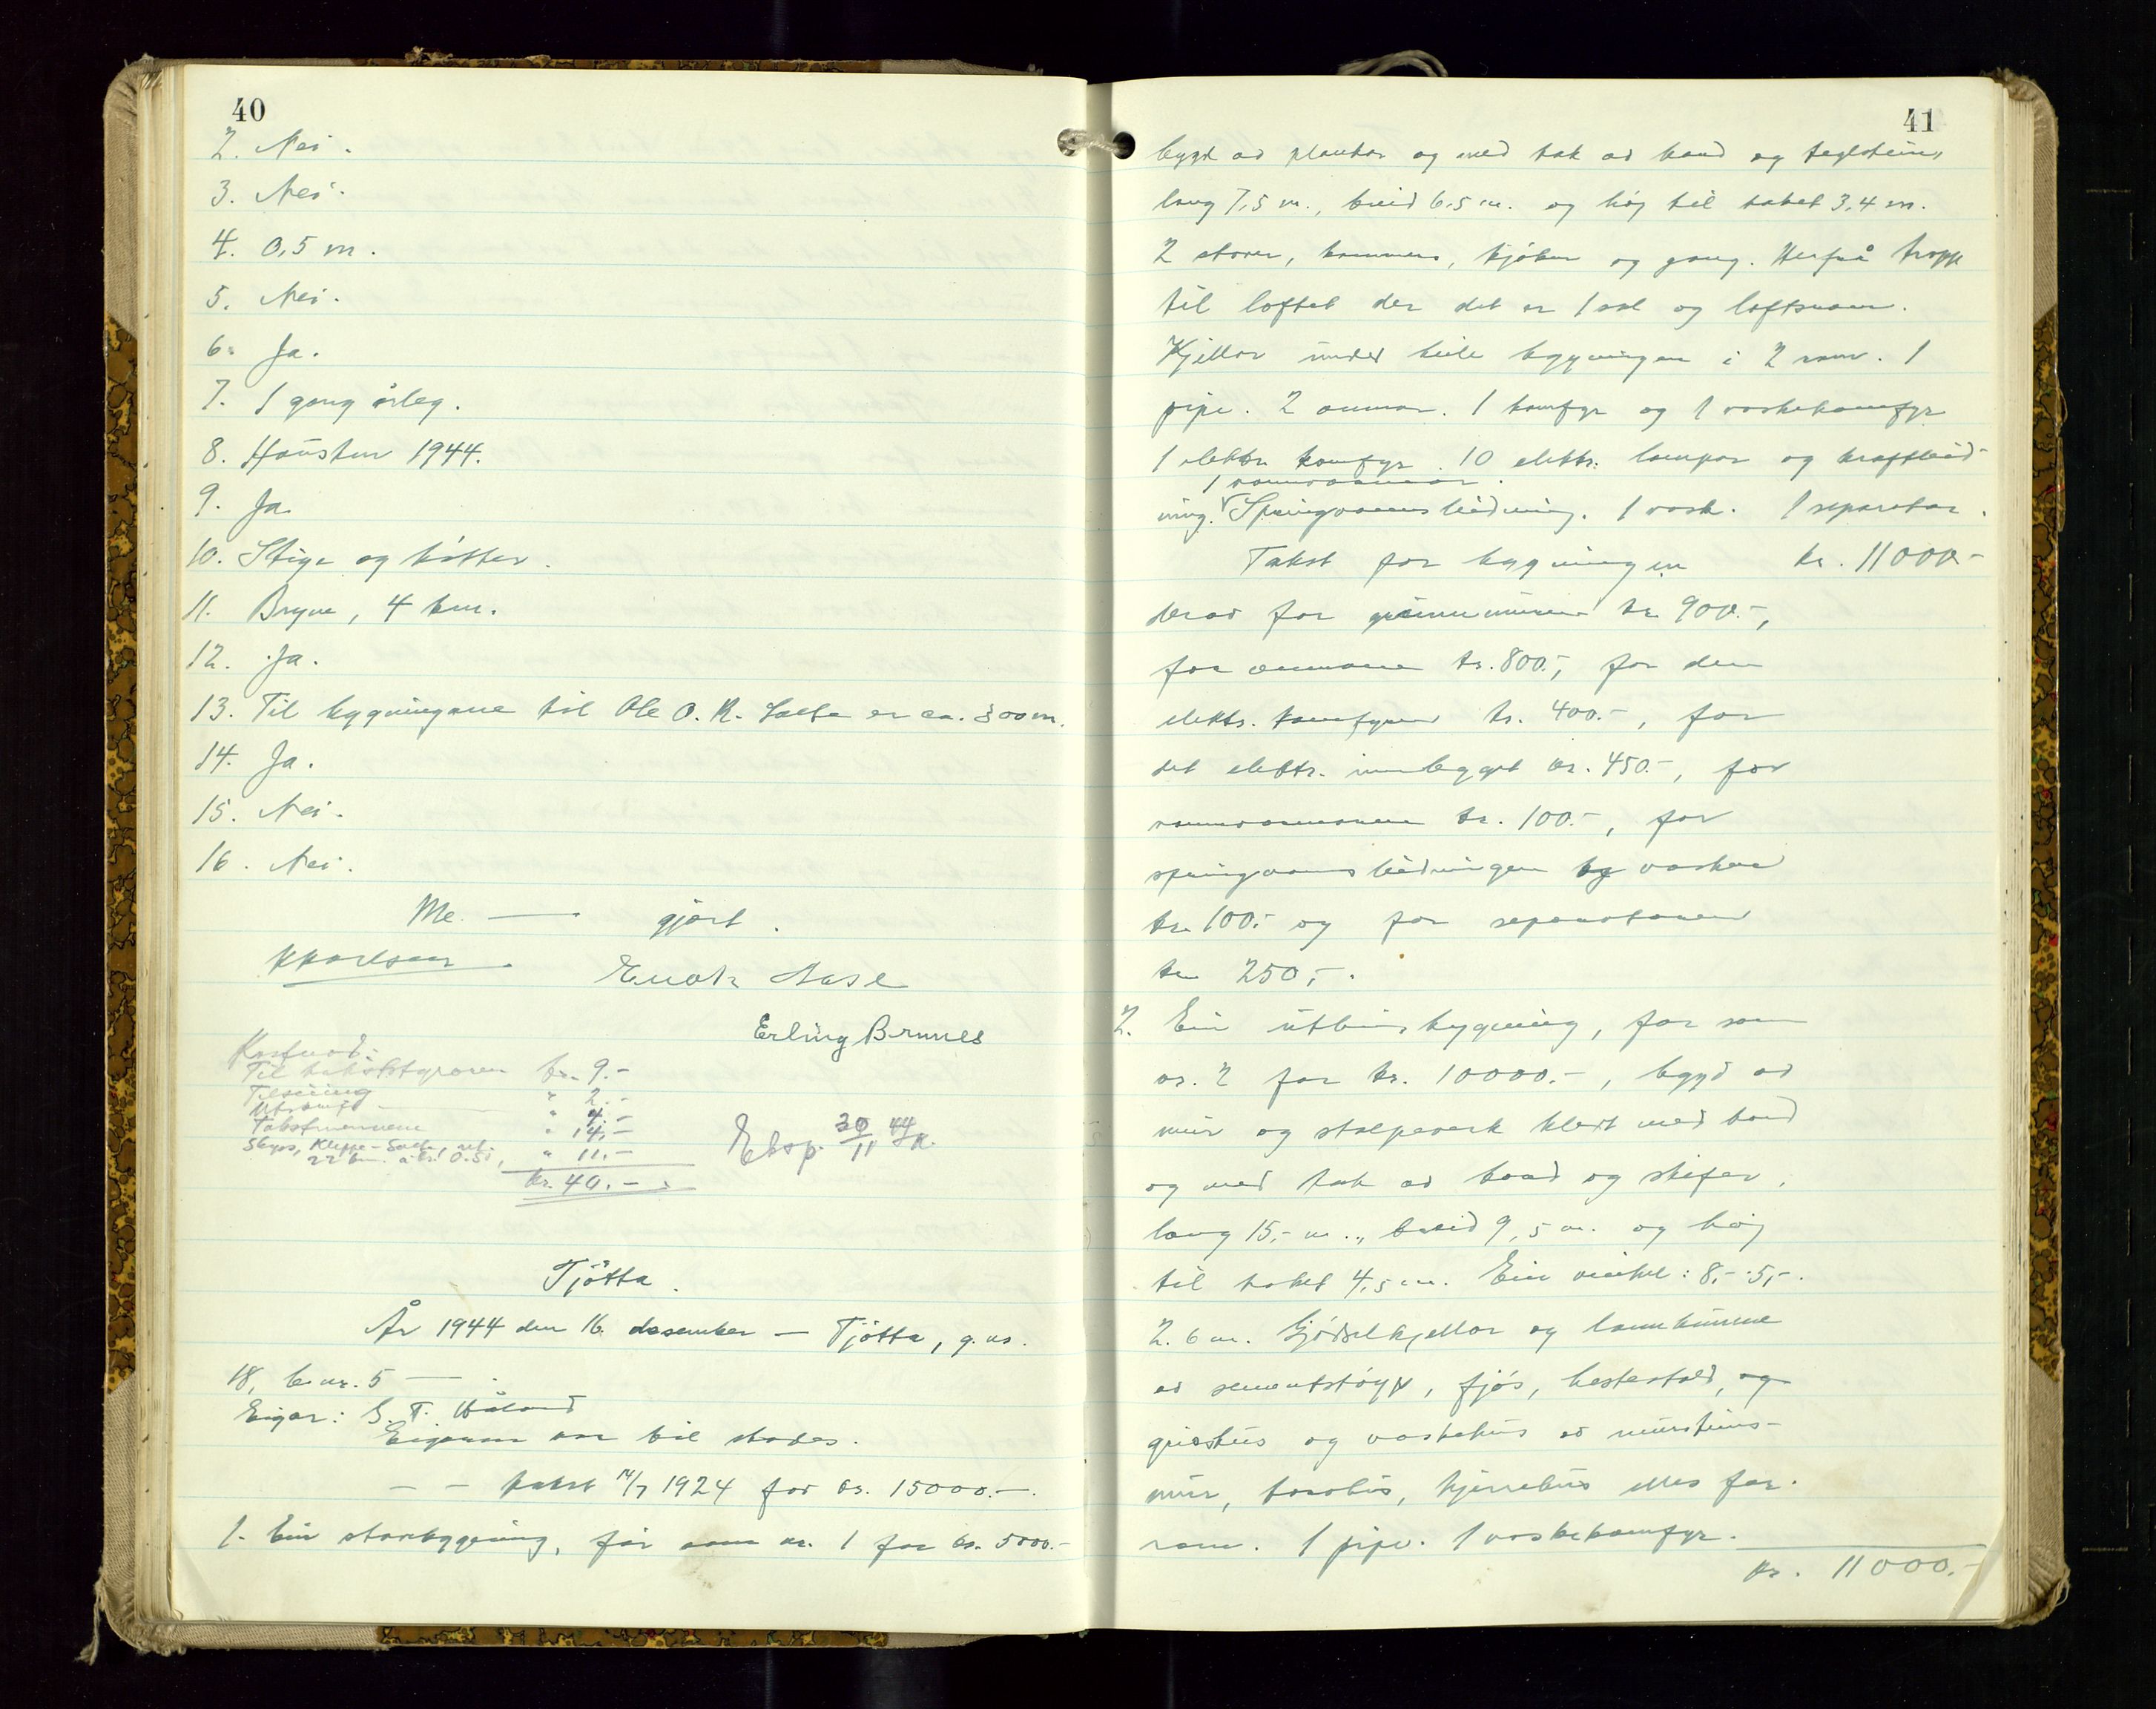 40
2. Nei.
3. Nei.
4. 0,5 m.
5. Nei.
6. Ja.
7. 1 gong årleg.
8. Hausten 1944.
9. Ja
10. Stige og bøtter.
11. Bryne, 4 km.
12. Ja.
13. Til bygningane til Ole O. R. Salte er ca. 300 m.
14. Ja.
15. Nei.
16. Nei.
Me. — gjort.
Enok Aase
Erling Brunes
Kostnad:
Til takststyraren kr. 9.-
Tilsiing " 2.-
Utskrift — " 4.-
Takstmennene " 14,-
Skyss, Kleppe - Salte, ret.
22 km. à kr. 0.50, " 11.-
kr. 40.-
Eksp. 30/11 44 K.
Tjøtta.
År 1944 den 16. desember — Tjøtta, g.nr.
18, b.nr. 5 —.
Eigar: G. T. Håland
Eigaren var til stades.
- - takst 14/7 1924 for kr. 15000.-.
1. Ein stovebygning, før som nr. 1 for kr. 5000.-
41
bygd av plankar og med tak av bord og teglstein,
lang 7,5 m., breid 6,5 m. og høg til taket 3,4 m.
2 stover, kammers, kjøken og gang. Herfrå tropp
til loftet der det er 1 sal og loftsrom.
Kjellar under heile bygningen i 2 rom. 1
pipe. 2 omnar. 1 komfyr og 1 vaskekomfyr
1 elektr. komfyr. 10 elektr. lampor og kraftleid-
1 varmvassomnar.
ning. Springvannsleidning. 1 vask. 1 separator.
Takst for bygningen kr. 11000.-
derav for grunnmuren kr. 900.-,
for omnane kr. 800.-, for den
elektr. komfyren kr. 400.-, for
det elektr. innlegget kr. 450.-, for
kr. 100.-, for
springvannsleidningen og vasken
kr. 100.- og for separatoren
kr. 250,-.
2. Ein uthusbygning, før som
nr. 2 for kr. 10000.-, bygd av
mur og stolpeverk kledt med bord
og med tak av bord og skifer,
lang 15,- m., breid 9,5 m. og høg
til taket 4,5 m. Ein vinkel: 8,- · 5,- .
2.6 m. Gjødselkjellar og landkumme
av sementstøyp, fjøs, hestestall, og
grisehus og vaskehus av mursteins-
mur, torvhus, kjerrehus elles for-
rom. 1 pipe. 1 vaskekomfyr.
kr. 11000.-